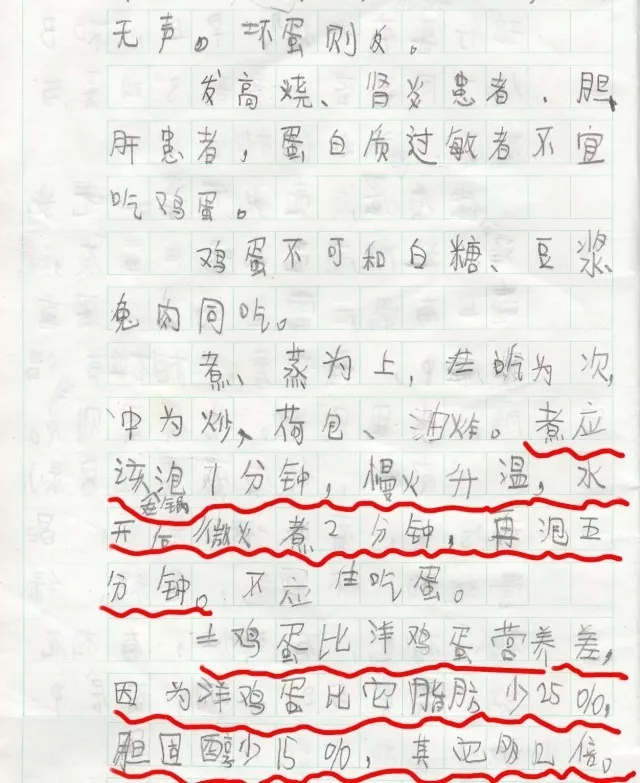 无声。坏蛋则反。
发高烧、肾炎患者、胆
肝患者,蛋白质过敏者不宜
吃鸡蛋。
鸡蛋不可和白糖、豆浆、
兔肉同吃。
煮、蒸为上,生吃为次,
冲为炒、荷包、油炸。煮应
该泡1分钟,慢火升温,水
开后微火煮2分钟,再泡五
分钟。不应生吃蛋。
土鸡蛋比洋鸡蛋营养差,
因为洋鸡蛋比它脂肪少25%,
胆固醇少15%,其它
倍。